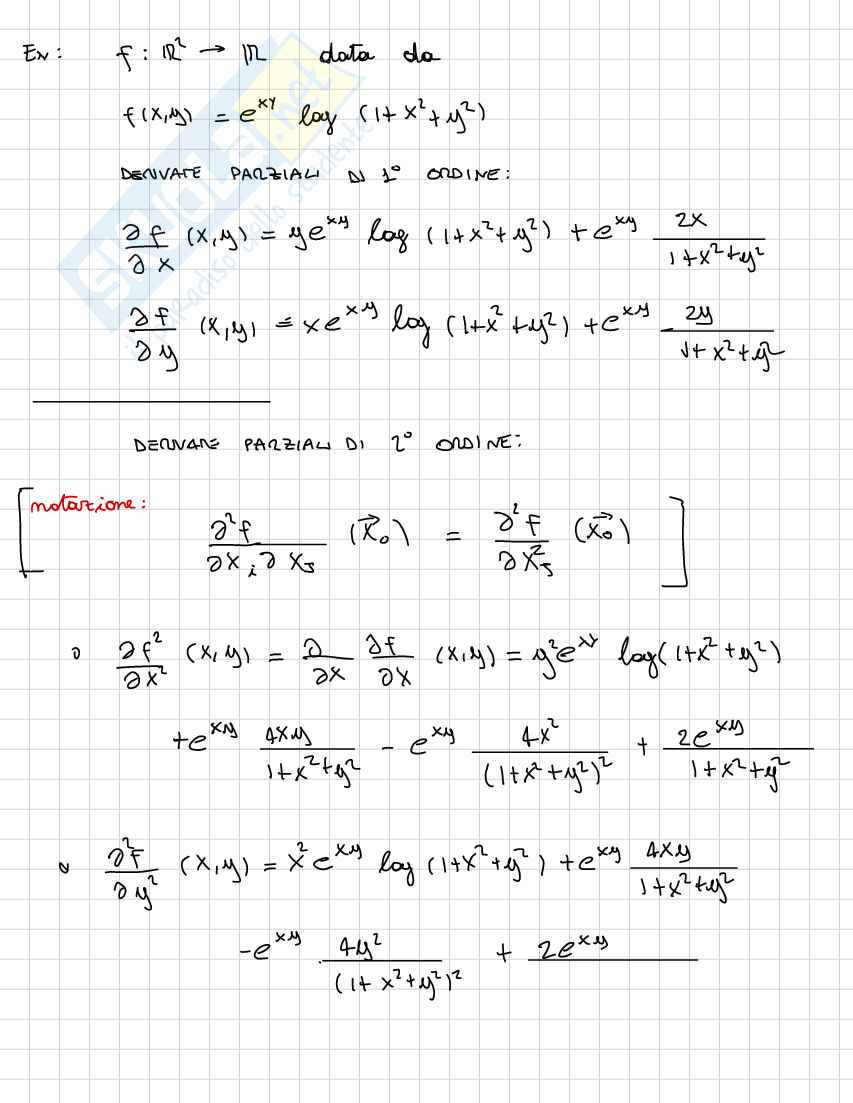 Es: f: ℝ² → ℝ data da
f(x,y) = e^{xy} log (1+x²+y²)
DERIVATE PARZIALI DI 1° ORDINE:
∂f/∂x (x,y) = ye^{xy} log (1+x²+y²) + e^{xy} 2x/(1+x²+y²)
∂f/∂y (x,y) = xe^{xy} log (1+x²+y²) + e^{xy} 2y/(1+x²+y²)
DERIVATE PARZIALI DI 2° ORDINE:
[notazione: ∂²f/(∂x_i ∂x_j) (x⃗₀) = ∂²f/∂x²_j (x⃗₀)]
∂f²/∂x² (x,y) = ∂/∂x ∂f/∂x (x,y) = y²e^{xy} log(1+x²+y²)
+e^{xy} 4xy/(1+x²+y²) - e^{xy} 4x²/(1+x²+y²)² + 2e^{xy}/(1+x²+y²)
∂²f/∂y² (x,y) = x²e^{xy} log (1+x²+y²) + e^{xy} 4xy/(1+x²+y²)
-e^{xy} · 4y²/(1+x²+y²)² + 2e^{xy}/
SKUOLA.net
il paradiso dello studente